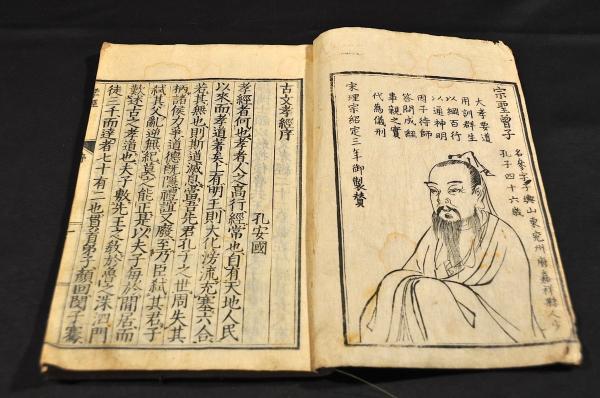 宗聖曾子
名參字子輿山東兗州府嘉祥縣人少
孔子四十六歲
大孝要道
用訓群生
以綱百行
以通神明
因子侍師
答問成經
事親之實
代為儀刑
宋理宗紹定三年御製贊
古文孝經序
孔安國
孝經者何也孝者人之高行經常也自有天地人民
以來而孝道著矣上有明王則大化滂流充塞六合
若其無也則斯道滅息當吾先君孔子之世周失其
柄諸侯力爭道德既隱禮誼又廢至乃臣弒其君子
弒其父亂逆無紀莫之能正是以夫子每於閒居而
歎述古之孝道也夫子敷先王之教於魯之洙泗門
徒三千而達者七十有二也貫首弟子顏回閔子騫